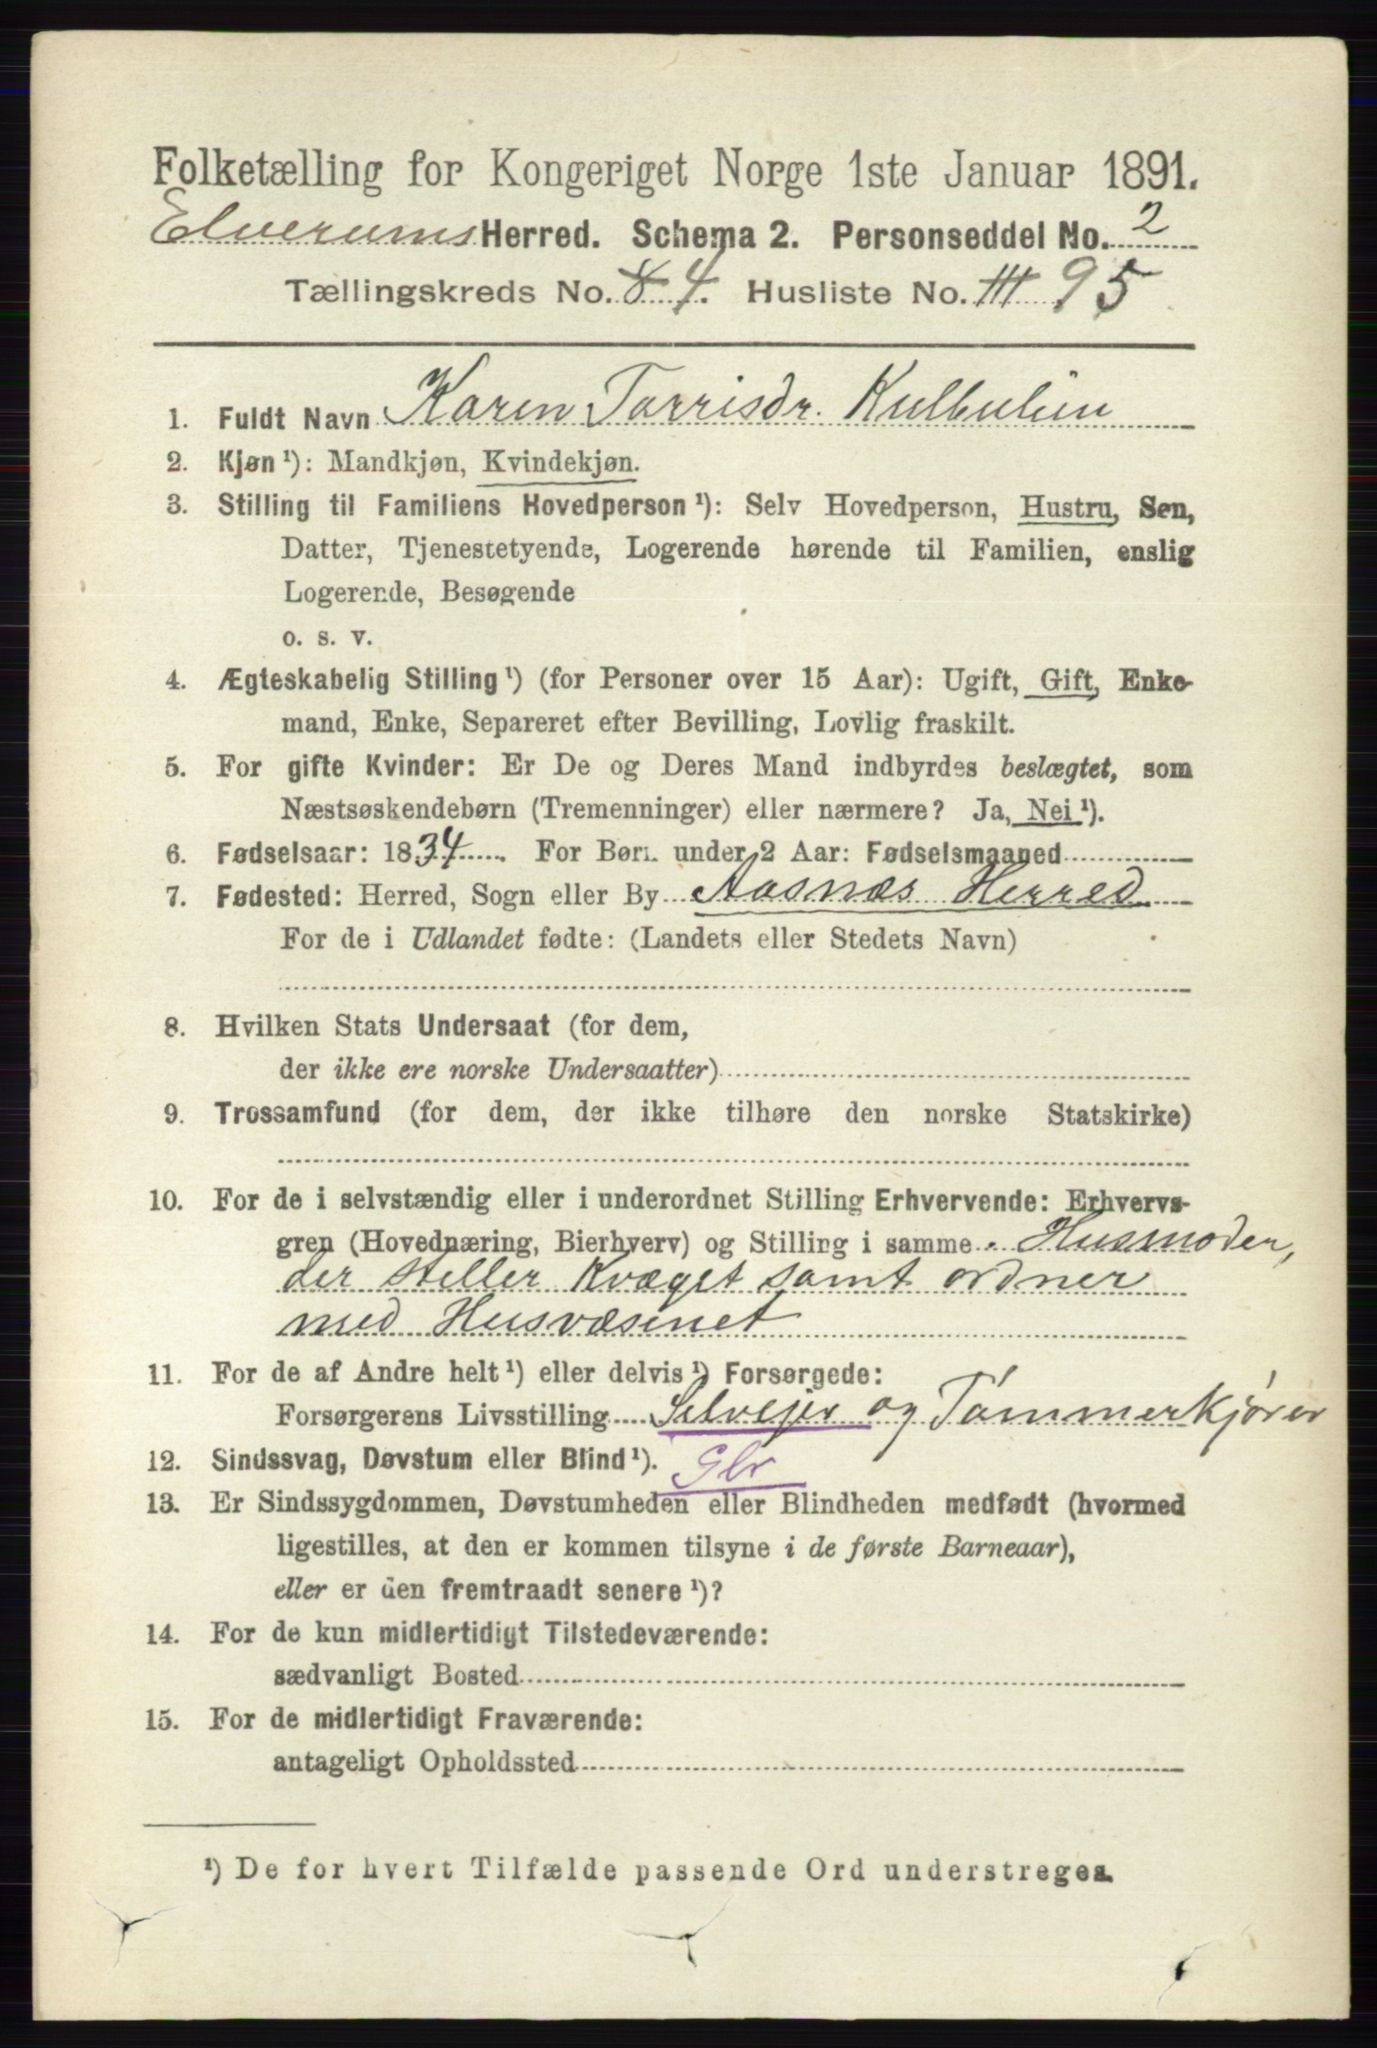 Folketælling for Kongeriget Norge 1ste Januar 1891.
Elverums Herred. Schema 2. Personseddel No. 2
Tællingskreds No. 8 4. Husliste No. 95
1. Fuldt Navn Karen Tarrisdr. Kulbulien
2. Kjøn ¹): Mandkjøn, Kvindekjøn.
3. Stilling til Familiens Hovedperson ¹): Selv Hovedperson, Hustru, Søn,
Datter, Tjenestetyende, Logerende hørende til Familien, enslig
Logerende, Besøgende
o. s. v.
4. Ægteskabelig Stilling ¹) (for Personer over 15 Aar): Ugift, Gift, Enke-
mand, Enke, Separeret efter Bevilling, Lovlig fraskilt.
5. For gifte Kvinder: Er De og Deres Mand indbyrdes beslægtet, som
Næstsøskendebørn (Tremenninger) eller nærmere? Ja, Nei ¹).
6. Fødselsaar: 1834. For Børn under 2 Aar: Fødselsmaaned
7. Fødested: Herred, Sogn eller By Aasnæs Herred
For de i Udlandet fødte: (Landets eller Stedets Navn)
8. Hvilken Stats Undersaat (for dem,
der ikke ere norske Undersaatter)
9. Trossamfund (for dem, der ikke tilhøre den norske Statskirke)
10. For de i selvstændig eller i underordnet Stilling Erhvervende: Erhvervs-
gren (Hovednæring, Bierhverv) og Stilling i samme. Husmoder,
der steller Kvæget samt ordner
med Husvæsenet
11. For de af Andre helt ¹) eller delvis ¹) Forsørgede:
Forsørgerens Livsstilling Selvejer og Tømmerkjører
12. Sindssvag, Døvstum eller Blind ¹). Gbr
13. Er Sindssygdommen, Døvstumheden eller Blindheden medfødt (hvormed
ligestilles, at den er kommen tilsyne i de første Barneaar),
eller er den fremtraadt senere ¹)?
14. For de kun midlertidigt Tilstedeværende:
sædvanligt Bosted
15. For de midlertidigt Fraværende:
antageligt Opholdssted
¹) De for hvert Tilfælde passende Ord understreges.